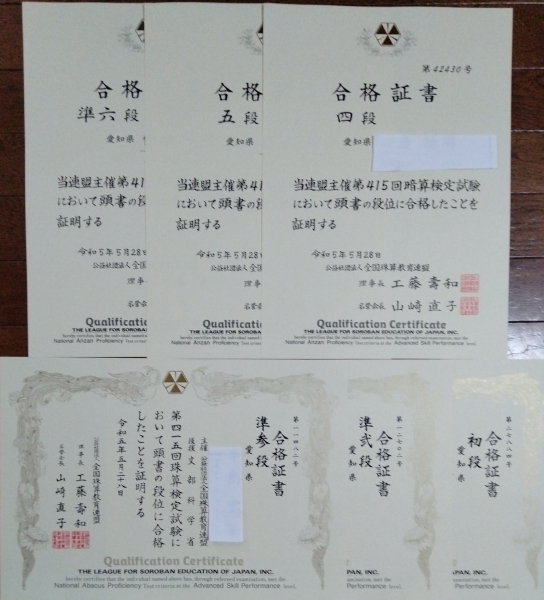 合格
準六段
愛知県
当連盟主催第41
において頭書の段
証明する
令和5年5月28
公益社団法人全国
理事
名誉会
Qualification
THE LEAGUE FOR SOROBAN
hereby certifies that the individual named
National Anzan Proficiency Test
合格
五段
愛知県
当連盟主催第41
において頭書の段
証明する
令和5年5月28
公益社団法人全国
理事
名誉会
Qualification
THE LEAGUE FOR SOROBAN
hereby certifies that the individual named
National Anzan Proficiency Test
第42430号
合格証書
四段
愛知県
当連盟主催第415回暗算検定試験
において頭書の段位に合格したことを
証明する
令和5年5月28日
公益社団法人全国珠算教育連盟
理事長 工藤壽和
名誉会長 山崎直子
Qualification Certificate
THE LEAGUE FOR SOROBAN EDUCATION OF JAPAN, INC.
National Anzan Proficiency Test criteria at the Advanced Skill Performance level.
第二七八八四号
合格証書
初段
愛知県
APAN, INC.
Performance level.
第一二七〇二号
合格証書
準弐段
愛知県
PAN, INC.
Performance level.
第一一四八二号
合格証書
準参段
愛知県
主催 公益社団法人全国珠算教育連盟
後援 文部科学省
第四一五回珠算検定試験に
おいて頭書の段位に合格
したことを証明する
令和五年五月二十八日
公益社団法人全国珠算教育連盟
理事長 工藤壽和
名誉会長 山崎直子
Qualification Certificate
THE LEAGUE FOR SOROBAN EDUCATION OF JAPAN, INC.
hereby certify that the individual named above has, through refereed examination, met the
National Abacus Proficiency Test criteria at the Advanced Skill Performance level.